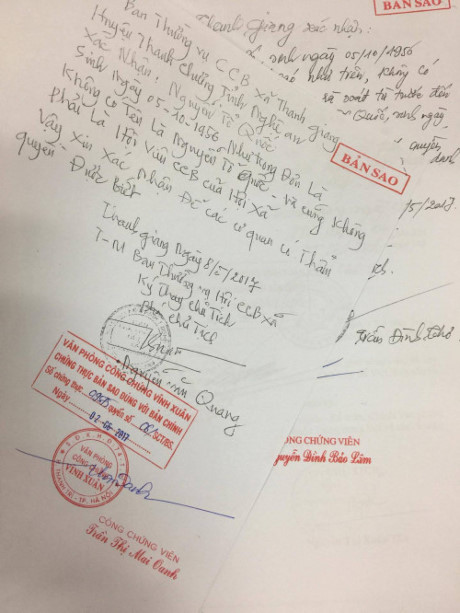 BẢN SAO
Thanh giang xác nhận
sinh ngày 05/10/1956
trên, không có
rà soát từ trước đến
Quốc, sinh ngày
quyền
danh
/5/2017.
Trần Đình
CÔNG CHỨNG VIÊN
Nguyễn Đình Bảo Lâm
BẢN SAO
Ban Thường vụ CCB xã Thanh giang
Huyện Thanh Chương Tỉnh Nghệ an
Xác Nhận: Nguyễn Tố Quốc
Sinh Ngày 05-10-1956 Như trong Đơn Là
Không có Tên Là Nguyễn Tố Quốc - và cũng không
Phải Là Hội Viên CCB của Hội xã
Vậy xin xác nhận Để các cơ quan có Thẩm
quyền Được Biết
Thanh giang ngày 8/5/2017
T-M Ban Thường vụ Hội CCB xã
Ký Thay chủ Tịch
Phó chủ Tịch
Nguyễn Quang
VĂN PHÒNG CÔNG CHỨNG VĨNH XUÂN
CHỨNG THỰC BẢN SAO ĐÚNG VỚI BẢN CHÍNH
Số chứng thực: quyển số: SCT/BS.
Ngày 02-06-2017
VĂN PHÒNG
CÔNG CHỨNG
VĨNH XUÂN
THANH TRÌ - TP. HÀ NỘI
CÔNG CHỨNG VIÊN
Trần Thị Mai Oanh